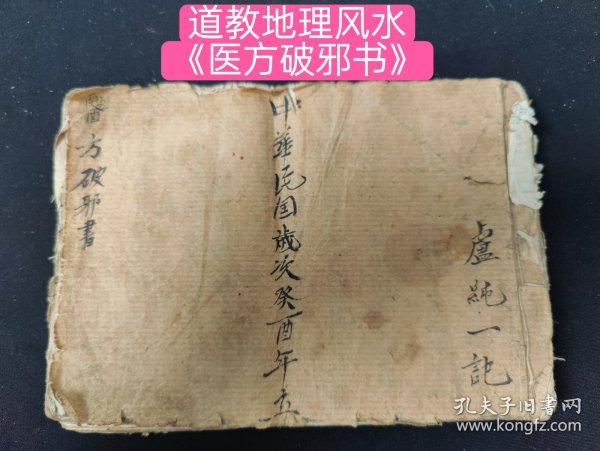 道教地理风水
《医方破邪书》
醫方破邪書
中華民国歲次癸酉年立
盧純一記
孔夫子旧书网
www.kongfz.com